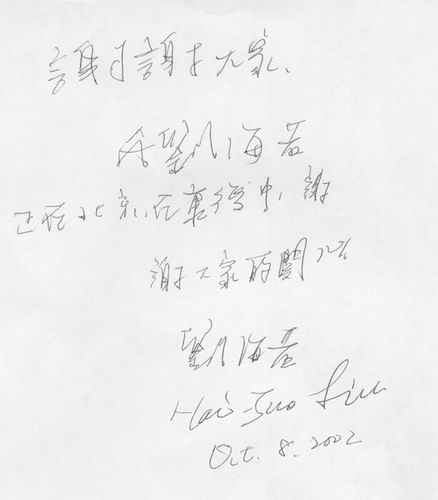 謝謝大家、
劉海若
正在北京,在復中,謝
謝大家的關心
劉海若
Hai-Ruo Liu
Oct. 8. 2002